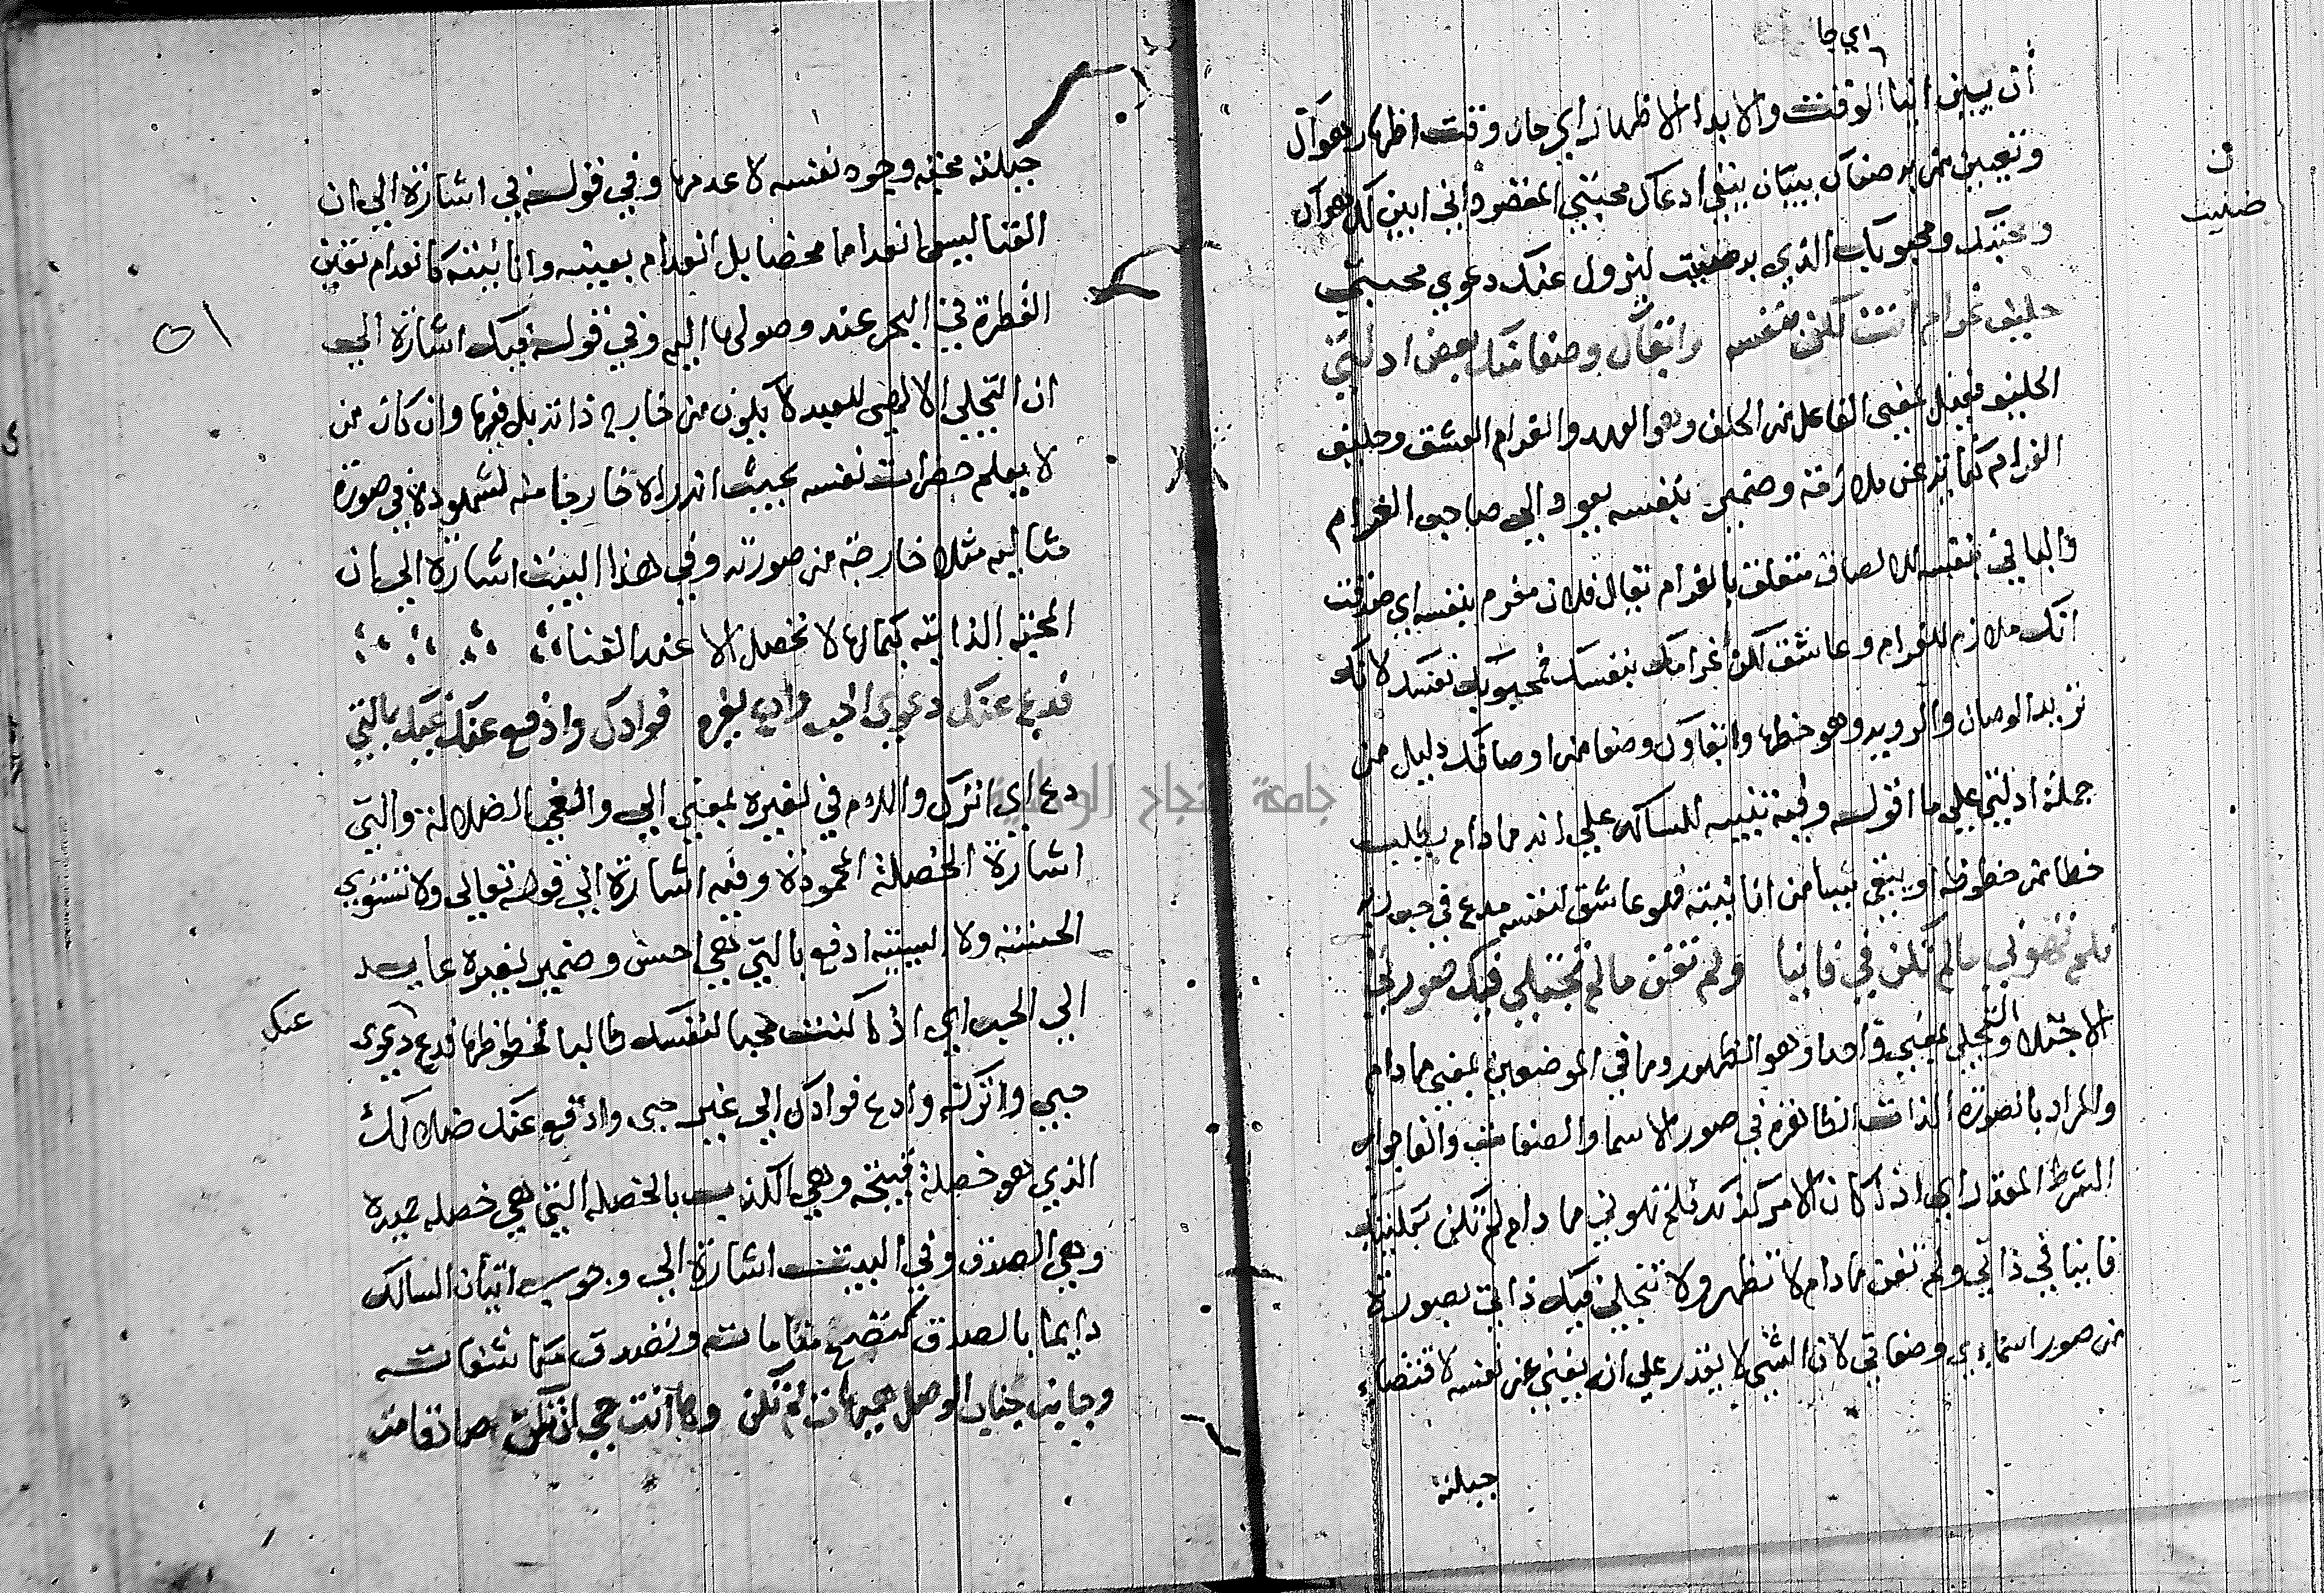 اي جا
أن يبين انيا الوقت والابدا الاظهار اي حان وقت اظهار هواك
وتعيين من به ضناك ببيان ينفي ادعاك محبتي المقصود اني ابين لك هواك
ضنيت
ومحبوبك الذي به ضنيت ليزول عنك دعوي محبتي
حليف غرام انت لكن بنفسه وابقاك وصفا منك بعض ادلتي
الحليف فعيل بمعني الفاعل من الحلف وهو العهد والغرام العشق وحليف
الغرام كناية عن ملازمه وضمير بنفسه يعود الي صاحب الغرام
والبا في بنفسه للالصاق متعلق بالغرام يقال فلان مغرم بنفسه اي صدقت
انك ملازم للغرام وعاشق لكن غرامك بنفسك فمحبوبك نفسك لانك
تريد الوصال والرويه وهو حظها وابقاوك وصفا من اوصافك دليل من
جملة ادلتي علي ما اقول وفيه تنبيه للسالك علي انه مادام يطلب
حظا من حظوظه او يبقي شيا من انانيته فهو عاشق لنفسه مدع في حب ربه
فلم تهوني مالم تكن في فانيا ولم تفن مالم تجتلي فيك صورتي
الاجتلا والتجلي بمعني واحد وهو الظهور وما في الموضعين بمعني مادام
والمراد بالصورة الذات الظاهرة في صور الاسما والصفات والفا جواب
الشرط المقدر اي اذا كان الامر كذلك فلم تهوني مادام لم تكن بكليتك
فانيا في ذاتي ولم تفن مادام لا تظهر ولا تتجلي فيك ذاتي بصورة
من صور اسماءي وصفاتي لان الشي لا يقدر علي ان يفني عن نفسه لاقتضاء
جبلته
جبلته محبة وجود نفسه لا عدمها وفي قوله في اشارة الي ان
الفنا ليس انعداما محضا بل انعدام تعينه وانانيته كانعدام تعين
القطرة في البحر عند وصولها اليه وفي قوله فيك اشارة الي
٥١
ان التجلي الالهي للعبد لا يكون من خارج ذاته بل فيها وان كان من
لا يعلم حضرات نفسه بحيث انه راه خارجا منه لشهوده في صورة
مثاليه مثلا خارجة من صورته وفي هذا البيت اشارة الي ان
المحبة الذاتية بكمالها لا تحصل الا عند الفنا
فدع عنك دعوي الحب وادع لغيره فوادك وادفع عنك غيك بالتي
دع اي اترك واللام في لغيره بمعني الي والغي الضلالة والتي
اشارة الخصلة المحمودة وفيه اشارة الي قوله تعالي ولا تستوي
الحسنة ولا السيئة ادفع بالتي هي احسن وضمير لغيره عايد
الي الحب اي اذا كنت محبا لنفسك طالبا لحظوظها فدع دعوي
عنك
حبي واتركه وادع فوادك الي غير حبي وادفع عنك ضلالك
الذي هو خصلة قبيحه وهي الكذب بالخصله التي هي خصله حميدة
وهي الصدق وفي البيت اشارة الي وجوب اتيان السالك
دايما بالصدق لتصح مقاماته وتصدق مكاشفاته
وجانب جناب الوصل هيهات لم تكن وها انت حي ان تكن صادقا مت
جامعة النجاح الوطنية